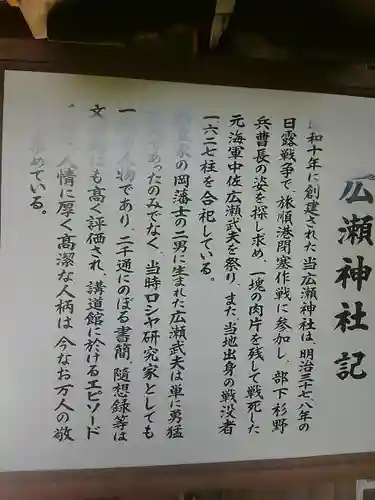 広瀬神社記
和十年に創建された当広瀬神社は、明治三十七八年の
日露戦争で、旅順港閉塞作戦に参加し、部下杉野
兵曹長の姿を探し求め、一塊の肉片を残して戦死した
元海軍中佐広瀬武夫を祭り、また、当地出身の戦没者
一六二七柱を合祀している。
家の岡藩士の二男に生まれた広瀬武夫は単に勇猛
であったのみでなく、当時ロシヤ研究家としても
一 人物であり、二千通にのぼる書簡、随想録等は
文 にも高く評価され、講道館に於けるエピソード
人情に厚く高潔な人柄は、今なお万人の敬
めている。